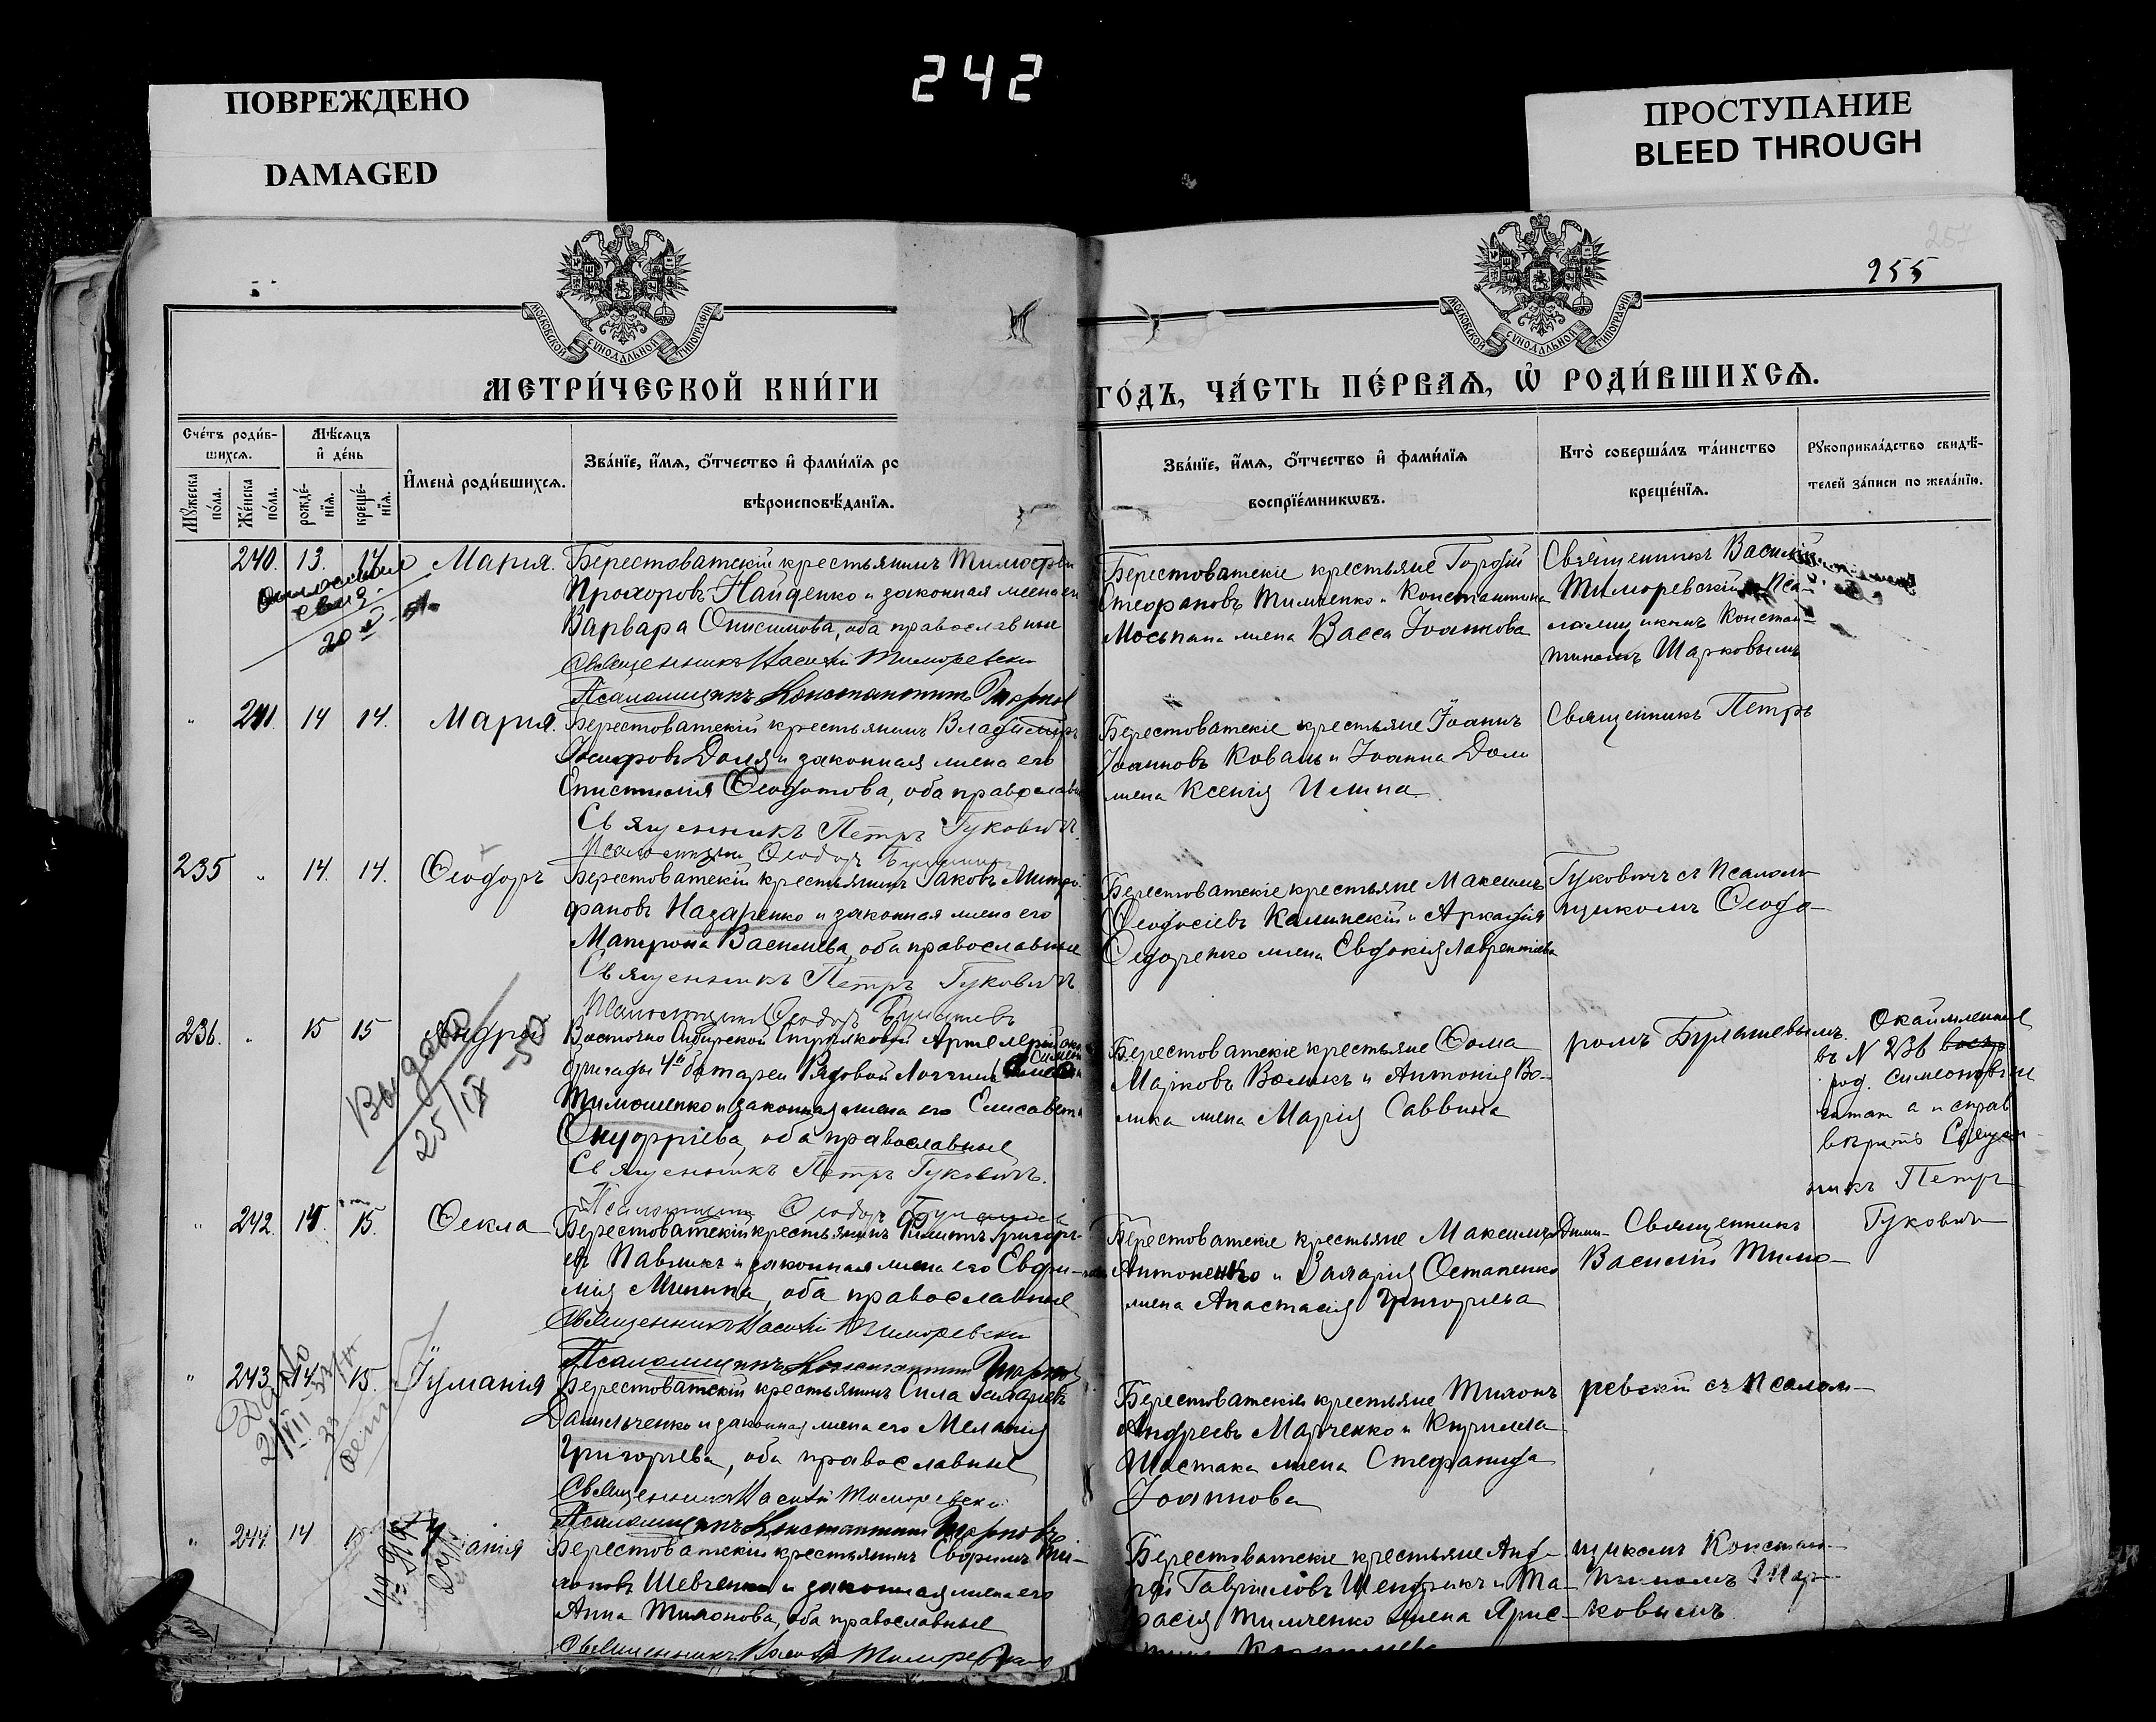 242
ПОВРЕЖДЕНО
DAMAGED
ПРОСТУПАНИЕ
BLEED THROUGH
255
МОСКОВСКОЙ СѴНОДАЛЬНОЙ ТИПОГРАФІИ
МОСКОВСКОЙ СѴНОДАЛЬНОЙ ТИПОГРАФІИ
МЕТРИ́ЧЕСКОЙ КНИ́ГИ
ГО́ДЪ, ЧА́СТЬ ПЕ́РВАѦ, Ѡ҆ РОДИ́ВШИХСѦ.
Сче́тъ роди́в-
шихсѧ.
Мѣ́сѧцъ
и҆ де́нь
Мꙋ́жеска
по́ла.
Же́нска
по́ла.
рожде́-
нїѧ.
креще́-
нїѧ.
И҆мена̀ роди́вшихсѧ.
Зва́нїе, и҆́мѧ, ѻ҆́тчество и҆ фами́лїѧ ро
вѣроисповѣ́данїѧ.
Зва́нїе, и҆́мѧ, ѻ҆́тчество и҆ фами́лїѧ
воспрїе́мникѡвъ.
Кто̀ соверша́лъ та́инство
креще́нїѧ.
Рꙋкоприкла́дство свидѣ́-
телей за́писи по жела́нїю.
240. 13. 14 Марія.
Берестоватскій крестьянинъ Тимофей
Прохоровъ Найденко и законная жена его
Варвара Онисимова, оба православные
Священникъ Василій Тиморевскій
Псаломщикъ Константинъ Шарков
Берестоватскіе крестьяне Гордій
Стефановъ Тимченко и Константина
Моспана жена Васса Іоаннова
Священникъ Василій
Тиморевскій Пса-
ломщикомъ Констан-
тиномъ Шарковымъ
" 241. 14 14. Марія.
Берестоватскій крестьянинъ Владиміръ
Іосифовъ Доля и законная жена его
Епистимія Ѳеодотова, оба православн
Священникъ Петръ Гуковичъ.
Псаломщикъ Ѳеодоръ
Берестоватскіе крестьяне Іоаннъ
Іоанновъ Коваль и Іоанна Доли
жена Ксенія Ильина
Священникъ Петръ
235 " 14. 14. Ѳеодоръ
Берестоватскій крестьянинъ Іаковъ Митро-
фановъ Назаренко и законная жена его
Матрона Васильева, оба православные
Священникъ Петръ Гуковичъ
Псаломщикъ Ѳеодоръ
Берестоватскіе крестьяне Максимъ
Ѳеодосіевъ Калинскій и Аркадія
Ѳедоренко жена Евдокія Лаврентіева
Гуковичъ съ Псалом-
щикомъ Ѳеодо-
236. " 15 15 Андрей
Выдано
25/IX-50
Восточно Сибирской Стрѣлковой Артиллерійской
бригады 4й батареи Рядовой Логгинъ
Тимошенко и законная жена его Елисавета
Онуфріева, оба православные
Священникъ Петръ Гуковичъ.
Псаломщикъ Ѳеодоръ
Берестоватскіе крестьяне Ѳома
Марковъ Воликъ и Антонія Во-
лика жена Марія Саввина
ромъ Булашевымъ.
въ N 236
род. Симеоновъ
Священ-
никъ Петръ
Гукович
" 242. 15. 15. Ѳекла
Берестоватскій крестьянинъ Филиппъ Григорь-
евъ Павликъ и законная жена его Евфи-
мія Минина, оба православные
Священникъ Василій Тиморевскій
Псаломщикъ Константинъ Шарков
Берестоватскіе крестьяне Максимъ
Антоненко и Захарія Остапенко
жена Анастасія Григорьева
Священникъ
Василій Тимо-
" 243. 14. 15. Іуліанія
Берестоватскій крестьянинъ Сила Захаріевъ
Данильченко и законная жена его Меланія
Григорьева, оба православные
Священникъ Василій Тиморевскій
Псаломщикъ Константинъ Шарковъ
Берестоватскіе крестьяне Тихонъ
Андреевъ Марченко и Кирилла
Шостака жена Стефанида
Іоаннова
ревскій съ Псалом-
" 244. 14 15
Берестоватскій крестьянинъ Евфимъ
Шевченко и законная жена его
Анна Тихонова, оба православные
Священникъ Василій Тиморевскій
Берестоватскіе крестьяне Анд-
рей Гавріиловъ Шендрикъ и Та-
расія Тимченко жена Хрис-
тина Корнильева
щикомъ Констан-
тиномъ Шар-
ковымъ.